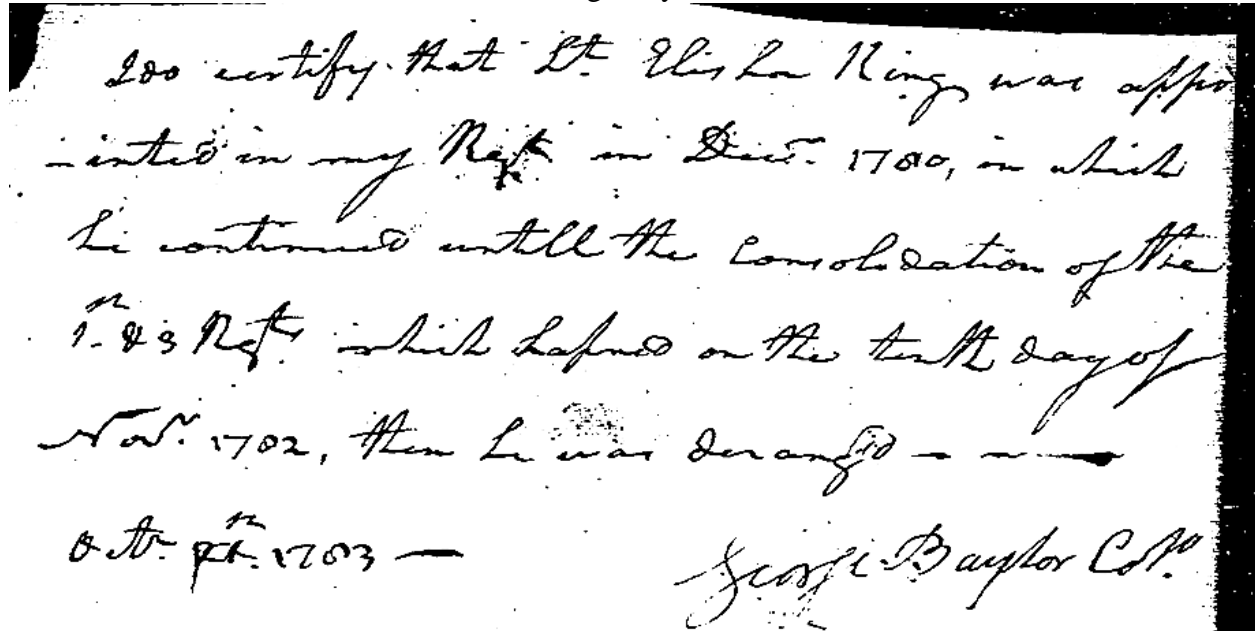 I do certify that Lt Elisha King was appo
-inted in my Regt in Decr. 1780, in which
he continued untill the Consolidation of the
1st & 3 Regts which hapned on the tenth day of
Novr. 1782, then he was derang'd
Octr. 1783 — George Baylor Colo